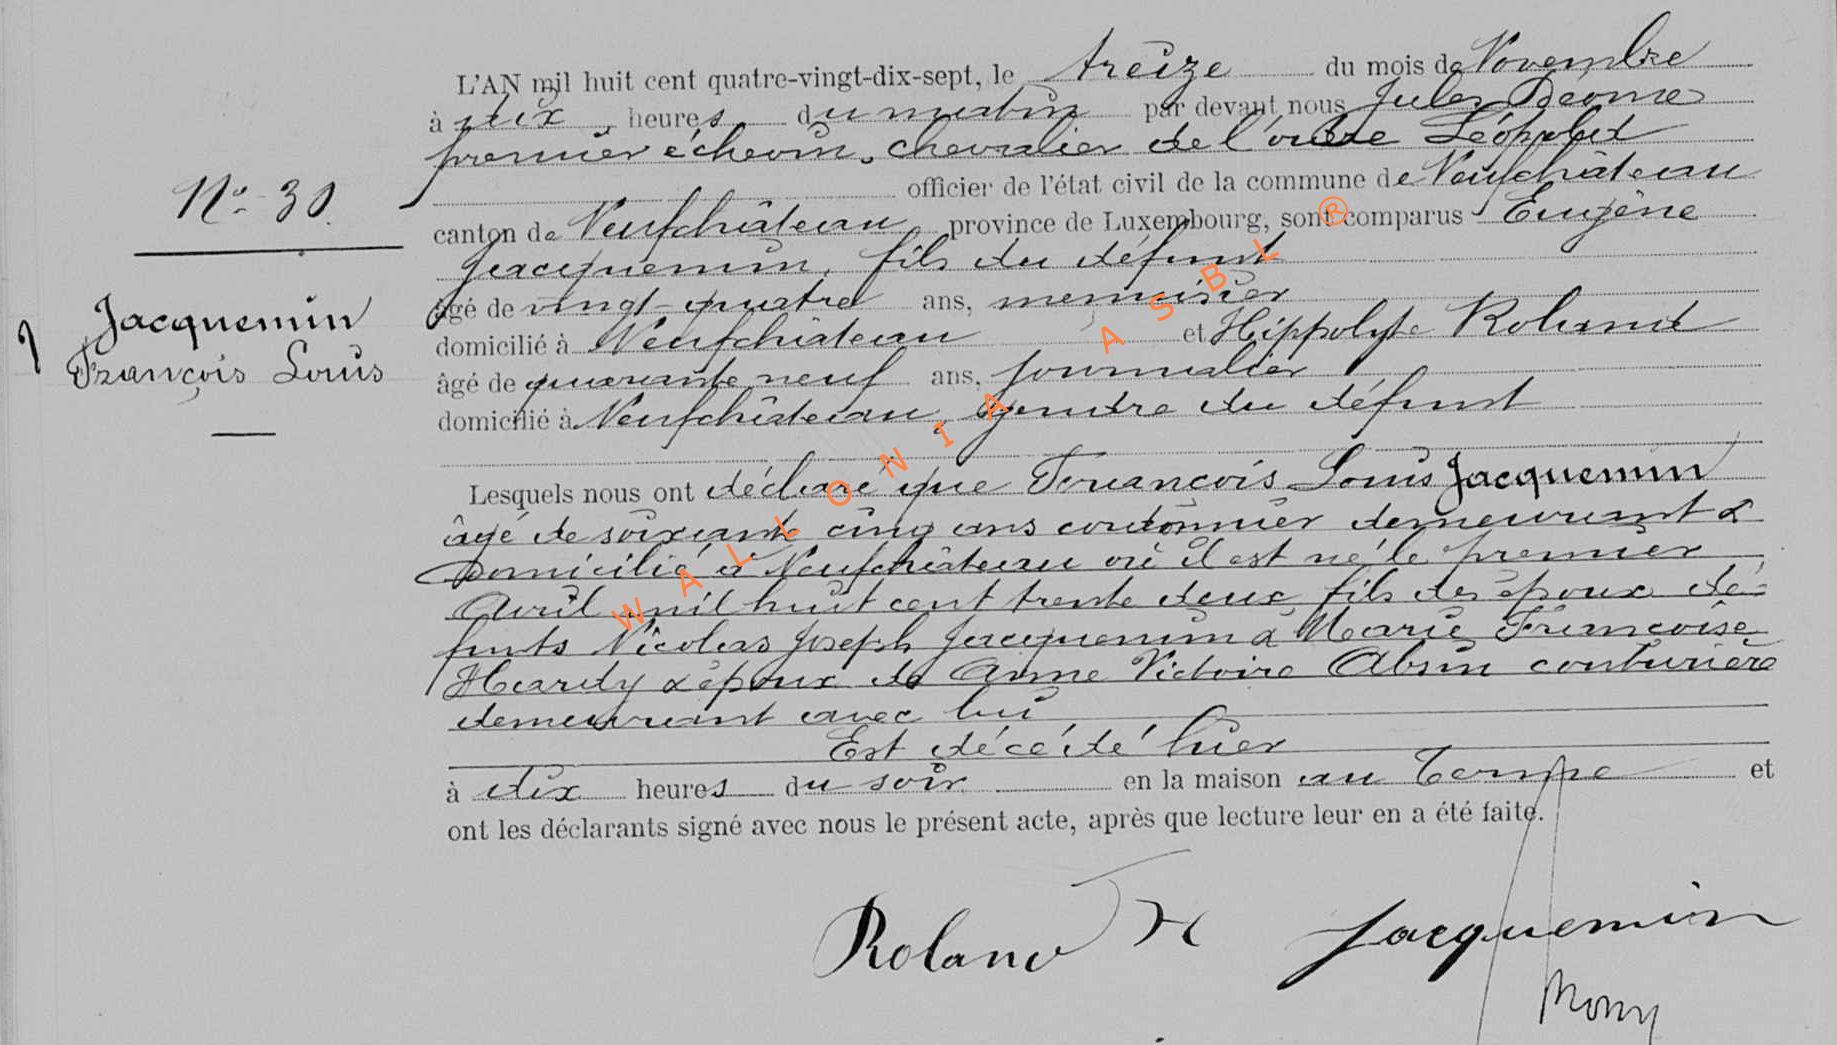 L'AN mil huit cent quatre-vingt-dix-sept, le treize du mois de Novembre
à dix heures du matin par devant nous Jules
premier échevin, chevalier de l'ordre Léopold
officier de l'état civil de la commune de Neufchâteau
canton de Neufchâteau province de Luxembourg, sont comparus Eugène
Jacquemin, fils du défunt
âgé de vingt-quatre ans, menuisier
domicilié à Neufchâteau et Hippolyte Roland
âgé de quarante neuf ans, journalier
domicilié à Neufchâteau, gendre du défunt
Lesquels nous ont déclaré que François Louis Jacquemin
âgé de soixante cinq ans cordonnier demeurant &
Domicilié à Neufchâteau où il est né le premier
Avril mil huit cent trente deux, fils des époux dé-
funts Nicolas Joseph Jacquemin & Marie Françoise
Hardy & époux de Anne Victoire Absin couturière
demeurant avec lui
Est décédé hier
à dix heures du soir en la maison au et
ont les déclarants signé avec nous le présent acte, après que lecture leur en a été faite.
Roland H Jacquemin
No. 30
Jacquemin
François Louis
WALLONIA ASBL ®